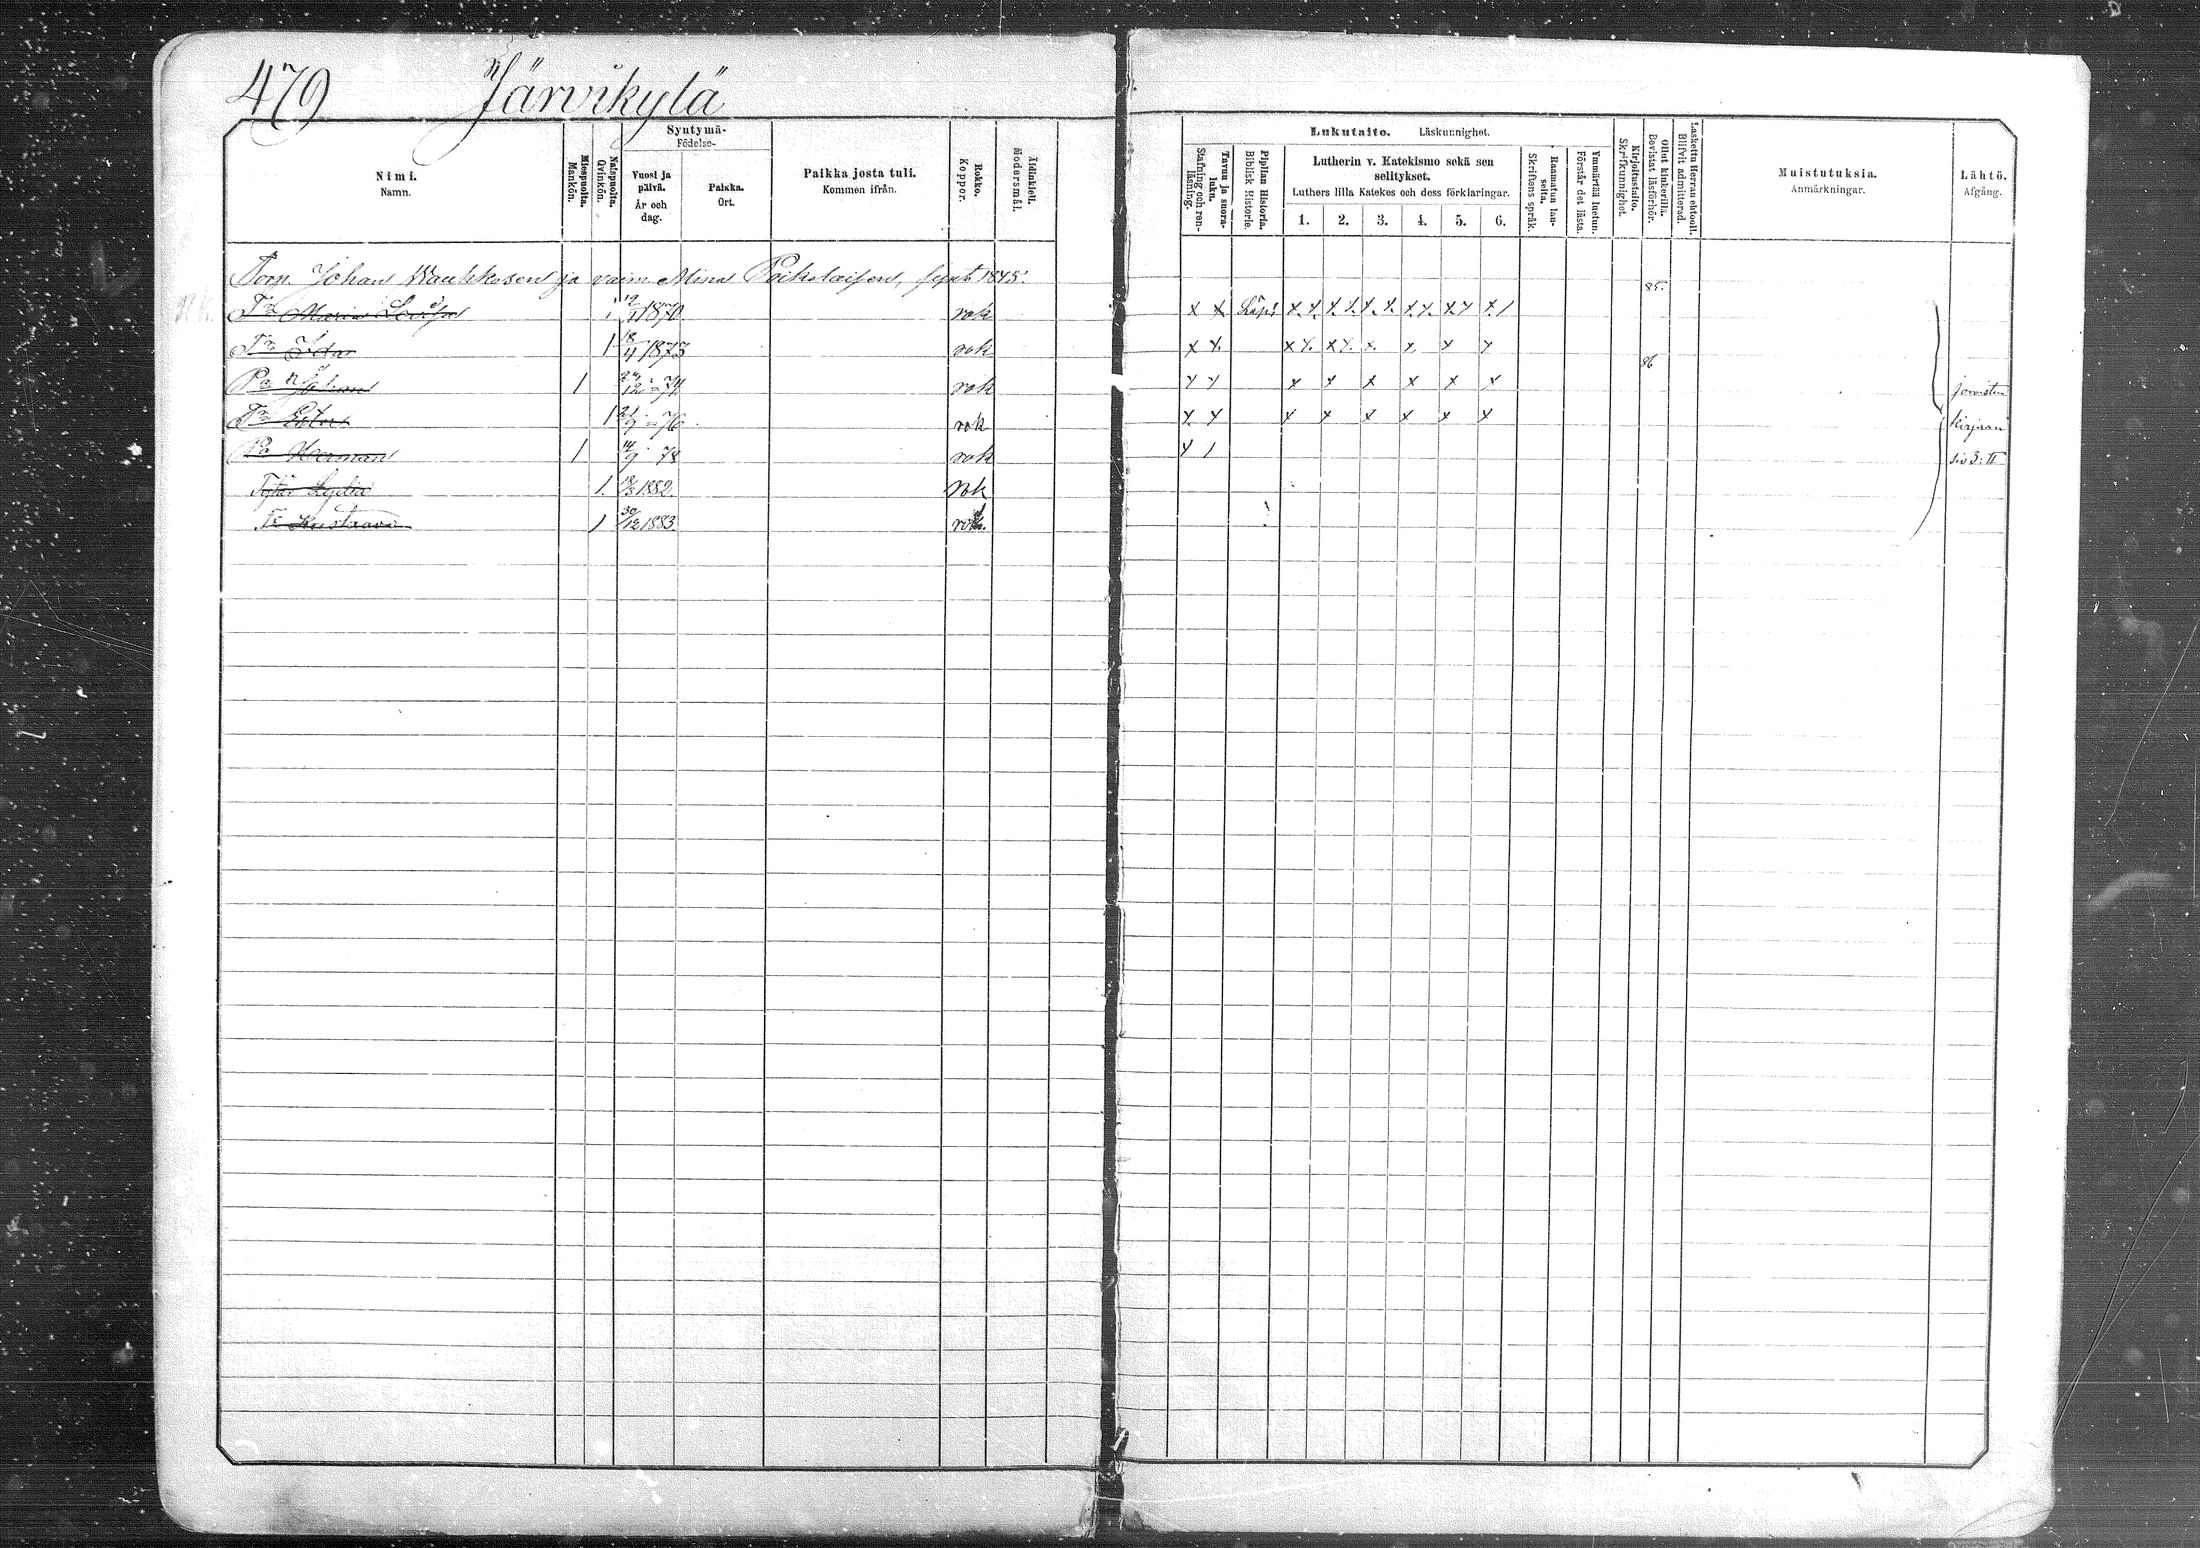 479 "Järvikylä"
Nimi. Namn.
Miespuolta. Mankön.
Naispuolta. Qvinkön.
Syntymä- Födelse-
Vuosi ja päivä. År och dag.
Paikka. Ort.
Paikka josta tuli. Kommen ifrån.
Rokko. Koppor.
Äidinkieli. Modersmål.
Lukutaito. Läskunnighet.
Tavuu ja suora-luku. Stafning och ren-läsning.
Piplian Historia. Biblisk Historie.
Lutherin v. Katekismo sekä sen selitykset.
Luthers lilla Katekes och dess förklaringar.
1. 2. 3. 4. 5. 6.
Raamatun lau-seita. Skriftens språk.
Ymmärtää luetun. Förstår det lästa.
Kirjoitustaito. Skrifkunnighet.
Ollut kinkerillä. Bevistat läsförhör.
Laskettu Herran ehtooll. Blifvit admitterad.
Muistutuksia. Anmärkningar.
Lähtö. Afgång.
Torp. Johan Waukkosen ja vaim. Mina 1845. 85.
Tr Maria Lovisa 1 1870 rok x x x x x x x x x x x x x 1
Tr Ida 1 18/4 1873 rok x x x x x x x x x x 86
Pa Johan 1 24/12 = 74 rok x x x x x x x x
Tr Ester 1 21/9 = 76 rok x x x x x x x x kirjaan
Pa Herman 1 14/9 78 rok x 1 siv 3: II
Tytär Lydia 1. 18/3 1882. rok
Tr Kustaava 1 30/12 1883. rok.